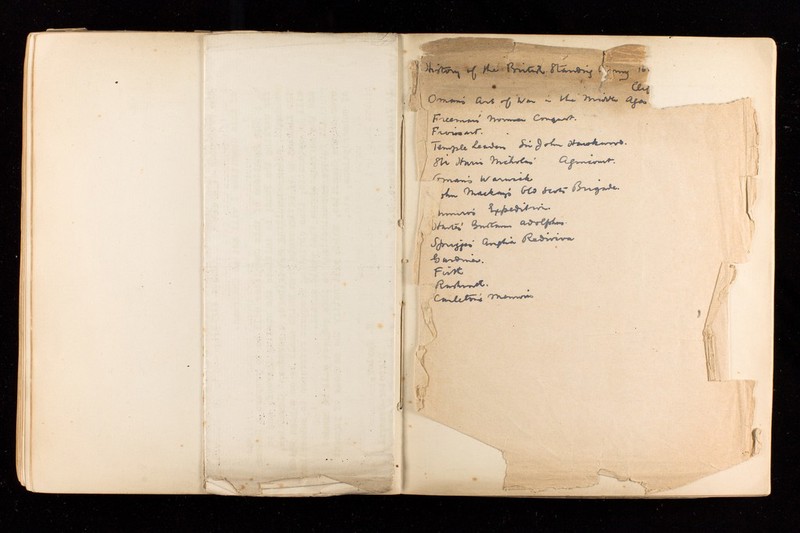 History of the British Standing Army 16
Oman's Art of War in the Middle Ages
Freeman's Norman Conquest.
Froissart.
Temple Leader Sir John Hawkwood.
Sir Harris Nicholas' Agincourt.
Oman's Warwick
John Mackay's Old Scots Brigade.
Munro's Expedition
Harte's Gustavus Adolphus.
Sprigge's Anglia Rediviva
Gardiner.
Firth
Rushworth.
Carleton's Memoirs